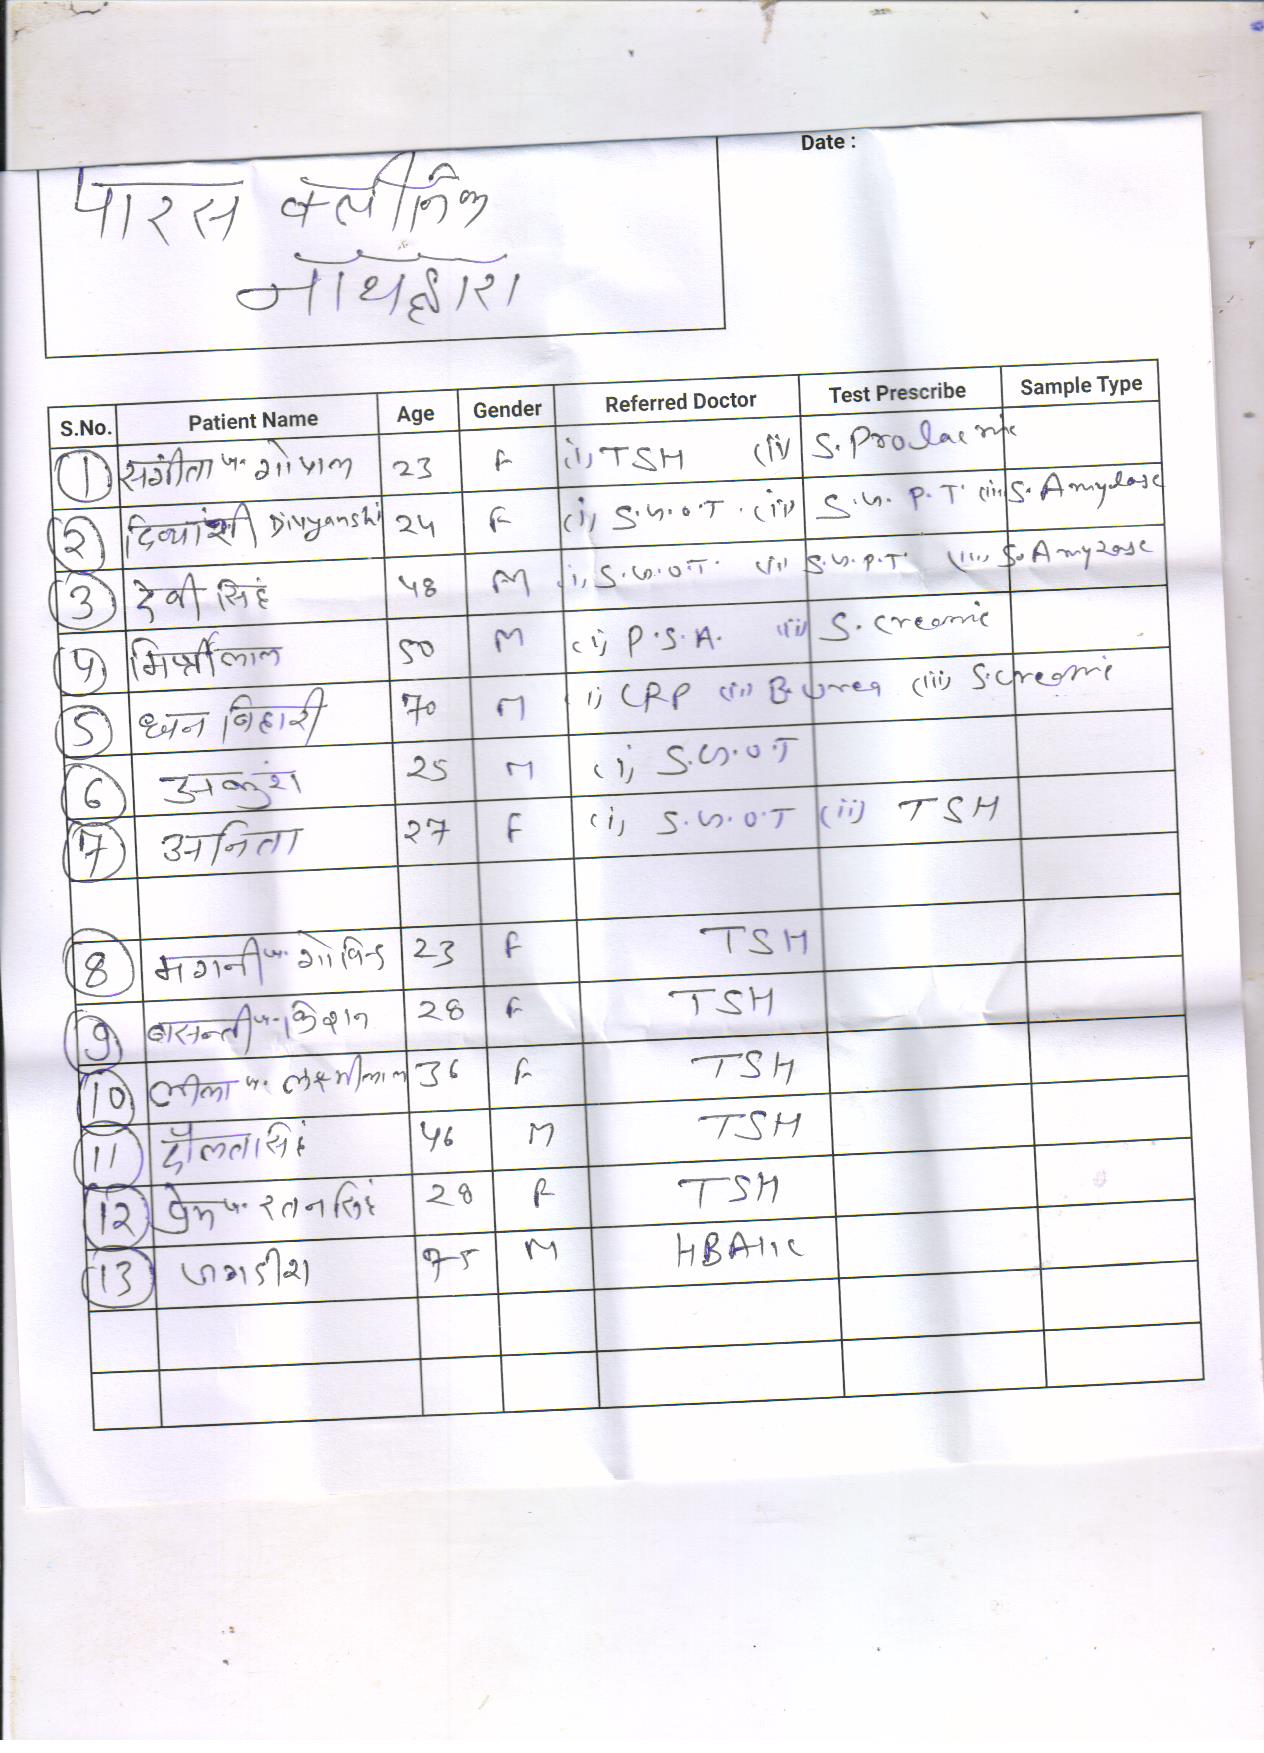 Date :
पारस क्लीनिक
नाथद्वारा
S.No. Patient Name Age Gender Referred Doctor Test Prescribe Sample Type
1 संगीता प. गोपाल 23 F (i) TSH (ii) S. Prolacnie
2 दिव्यांशी Divyanshi 24 F (i) S.G.O.T. (ii) S.G.P.T. (iii) S. Amylase
3 देवी सिंह 48 M (i) S.G.O.T. (ii) S.G.P.T. (iii) S. Amylase
4 मिश्रीलाल 50 M (i) P.S.A. (ii) S. Creanie
5 धन बिहारी 70 M (i) CRP (ii) B. Urea (iii) S. Creanie
6 अकुंश 25 M (i) S.G.O.T
7 अनिता 27 F (i) S.G.O.T (ii) TSH
8 मगनी प. गोविन्द 23 F TSH
9 बासन्ती प. किशन 28 F TSH
10 लीला प. लक्ष्मीलाल 36 F TSH
11 दौलत सिंह 46 M TSH
12 प्रेम प. रतन सिंह 28 F TSH
13 जगदीश 75 M HBA1c